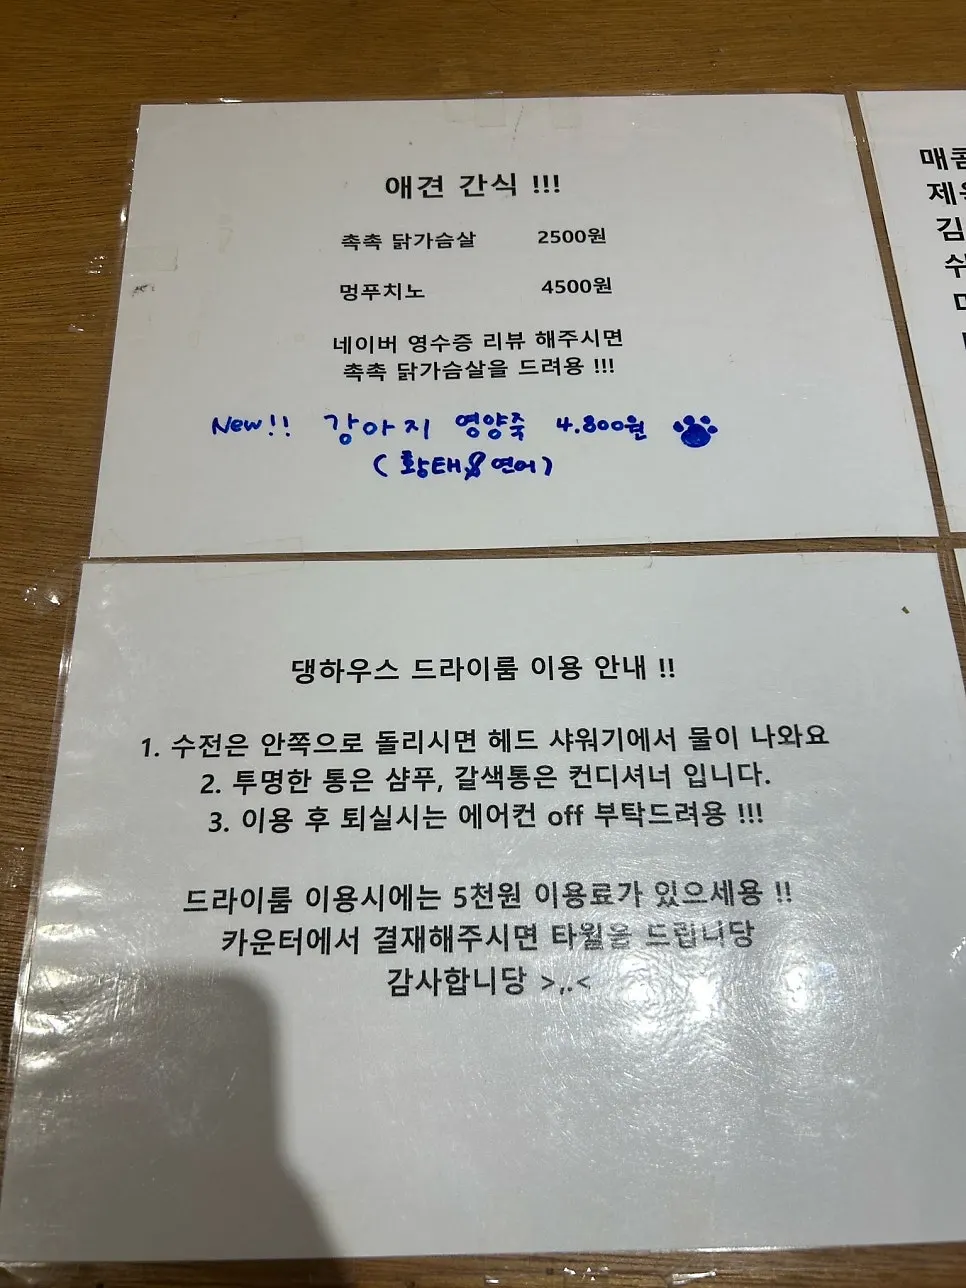 애견 간식 !!!
촉촉 닭가슴살 2500원
멍푸치노 4500원
네이버 영수증 리뷰 해주시면
촉촉 닭가슴살을 드려용 !!!
New!! 강아지 영양죽 4.800원
(황태&연어)
매콤
김
댕하우스 드라이룸 이용 안내 !!
1. 수전은 안쪽으로 돌리시면 헤드 샤워기에서 물이 나와요
2. 투명한 통은 샴푸, 갈색통은 컨디셔너 입니다.
3. 이용 후 퇴실시는 에어컨 off 부탁드려용 !!!
드라이룸 이용시에는 5천원 이용료가 있으세용 !!
카운터에서 결재해주시면 타월을 드립니당
감사합니당 >,.<